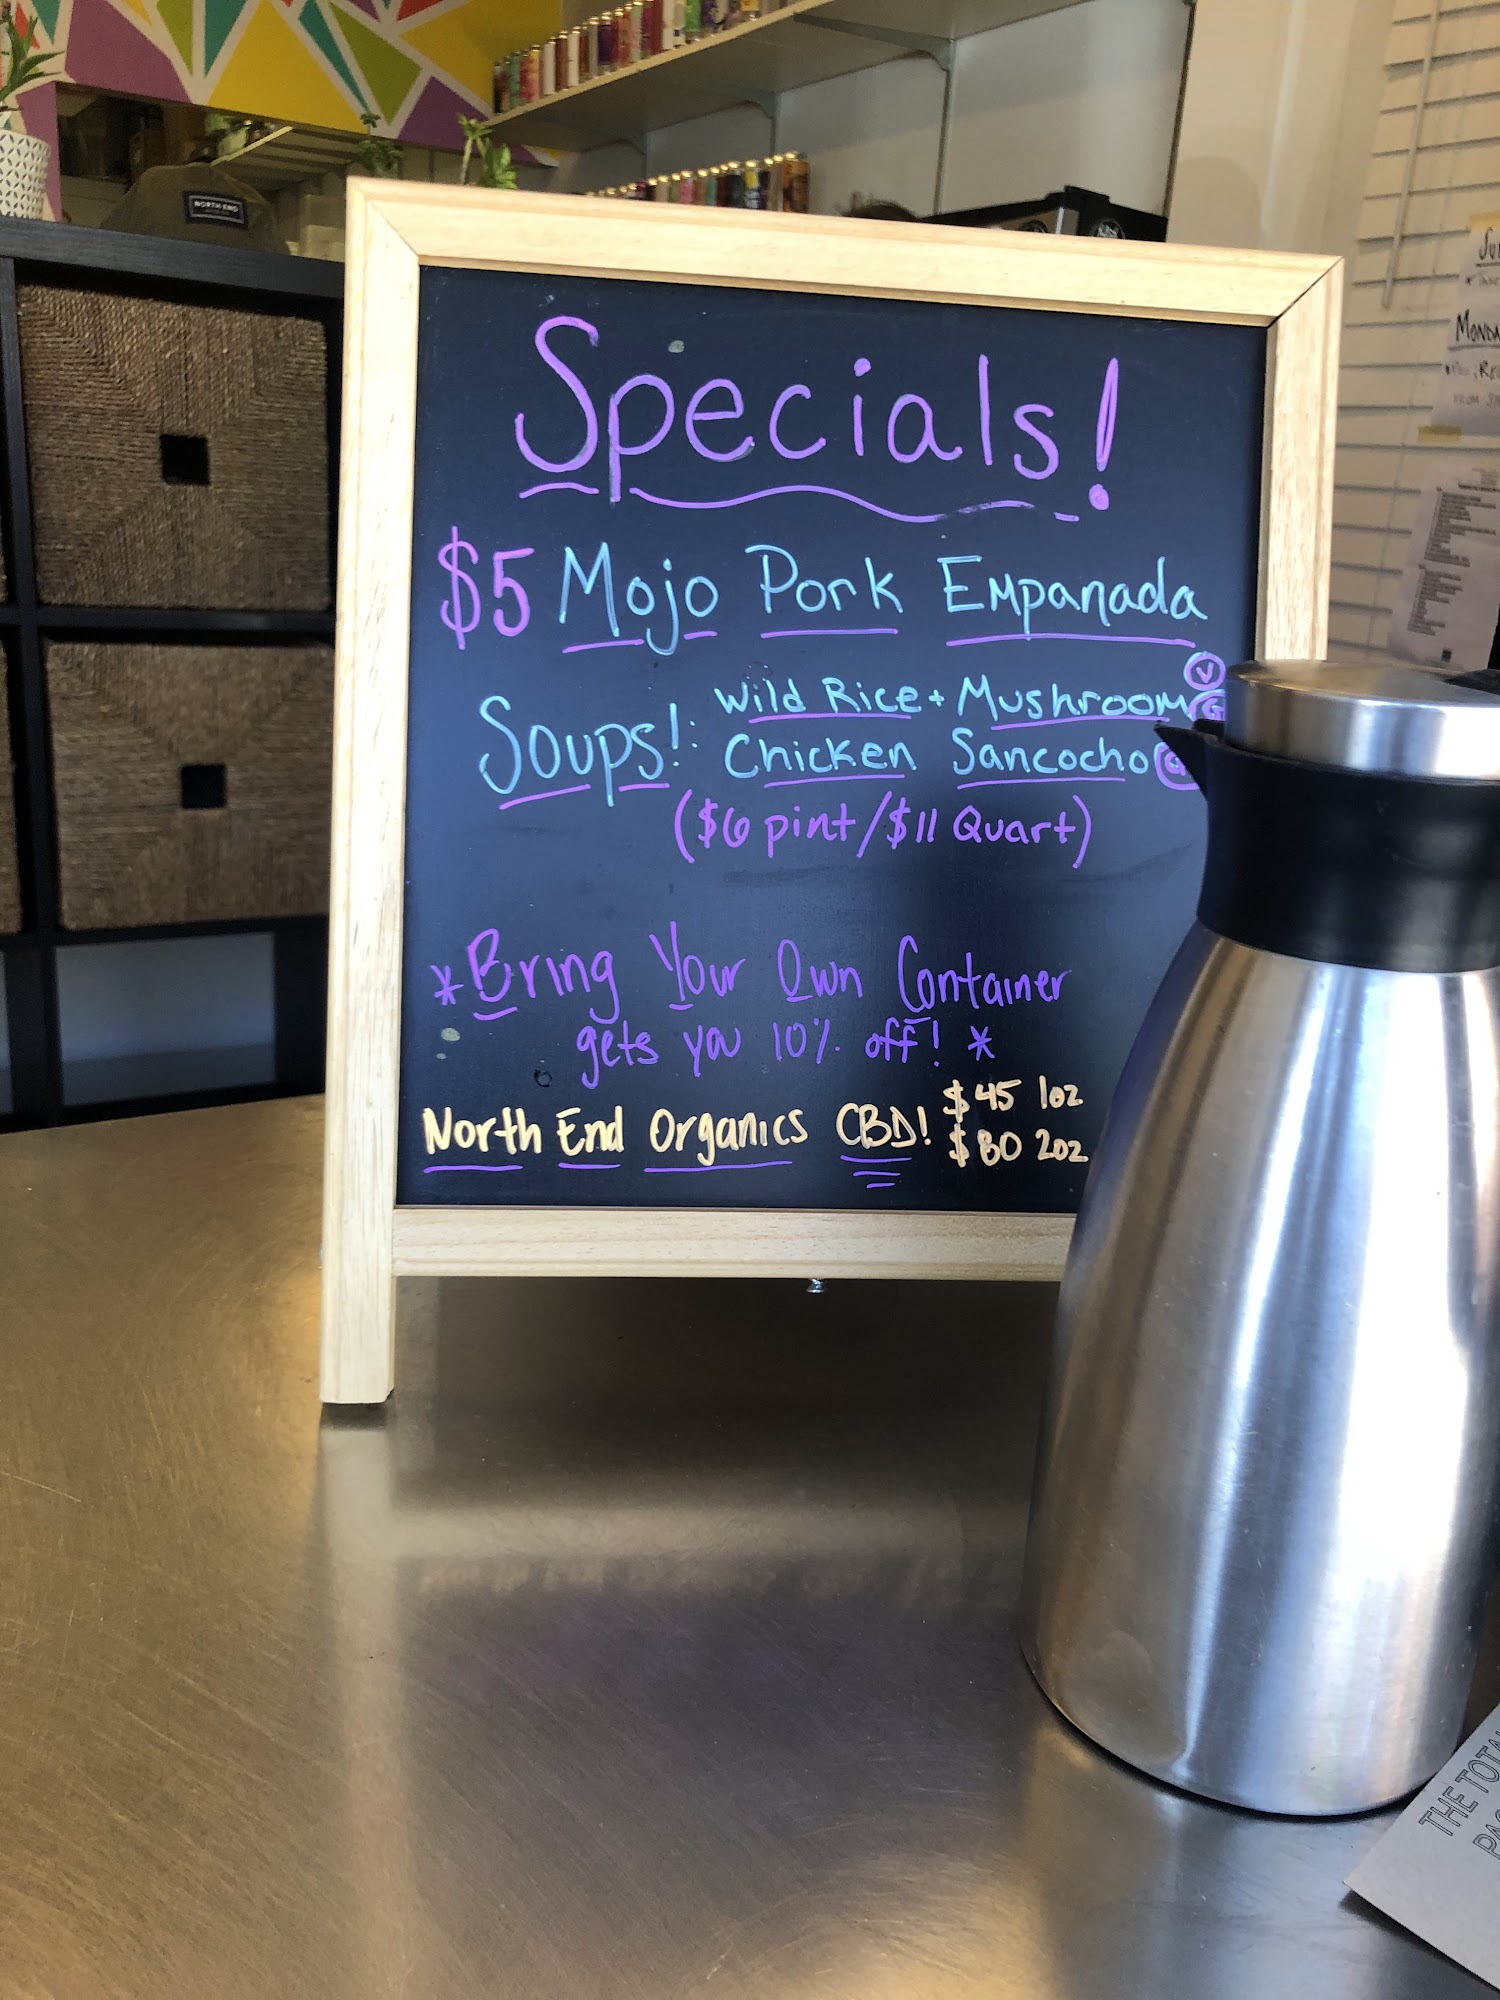 Specials!
$5 Mojo Pork Empanada
Soups!: Wild Rice + Mushroom V G
Chicken Sancocho G
($6 pint/$11 Quart)
*Bring Your Own Container
gets you 10% off! *
North End Organics CBD! $45 1oz
$80 2oz
NORTH END
MONDA
FROM
THE TOTA